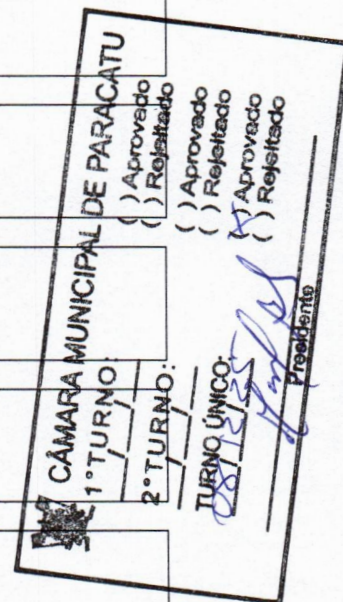 CÂMARA MUNICIPAL DE PARACATU
1º TURNO: ( ) Aprovado
__/__/__ ( ) Rejeitado
2º TURNO: ( ) Aprovado
__/__/__ ( ) Rejeitado
TURNO ÚNICO: (X) Aprovado
08/12/25 ( ) Rejeitado
Presidente